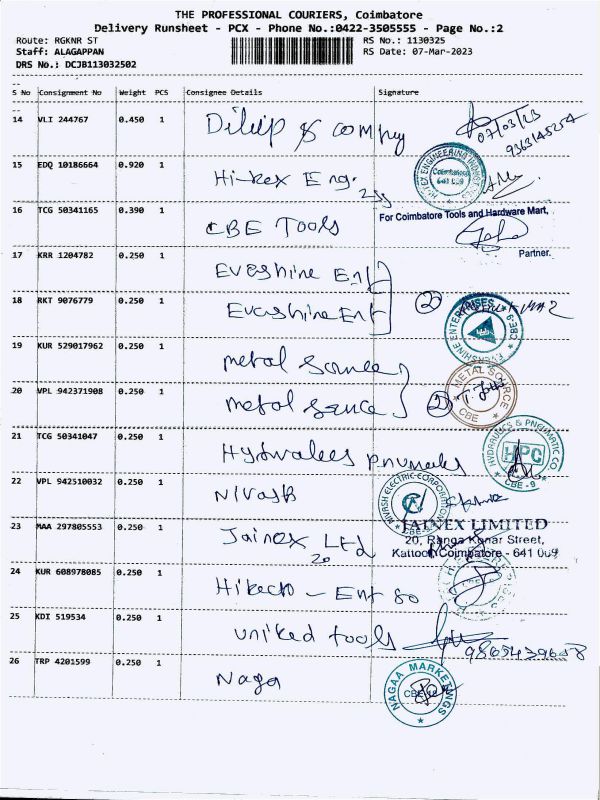 THE PROFESSIONAL COURIERS, Coimbatore
Delivery Runsheet - PCX - Phone No.:0422-3505555 - Page No.:2
Route: RGKNR ST
RS No.: 1130325
Staff: ALAGAPPAN
RS Date: 07-Mar-2023
DRS No.: DCJB113032502
S No Consignment No Weight PCS Consignee Details Signature
14 VLI 244767 0.450 1 Dilip & compny
07/03/23
9363145254
15 EDQ 10186664 0.920 1 Hi-kex Eng.
Coimbatore
641 009
16 TCG 50341165 0.390 1 CBE Tools
For Coimbatore Tools and Hardware Mart,
Partner.
17 KRR 1204782 0.250 1 Evashine Ent
18 RKT 9076779 0.250 1 Evashine Ent
2
EVERSHINE ENTERPRISES CBE-9
19 KUR 529017962 0.250 1 metal source
20 VPL 942371908 0.250 1 metal source
2
METAL SOURCE CBE
21 TCG 50341047 0.250 1 Hydraulees pnumales
HYDRAULICS & PNEUMATIC CO
HPC
CBE - 9
22 VPL 942510032 0.250 1 Nivash
NIVASH ELECTRIC CORPORATION
CBE-9
23 MAA 297805553 0.250 1 Jainex Ltd
20
JAINEX LIMITED
20, Ranga Konar Street,
Kattoor, Coimbatore - 641 009
24 KUR 608978085 0.250 1 Hikech - Ent 80
25 KDI 519534 0.250 1 united tools
9865439658
26 TRP 4201599 0.250 1 Naga
NAGAA MARKETINGS
CBE